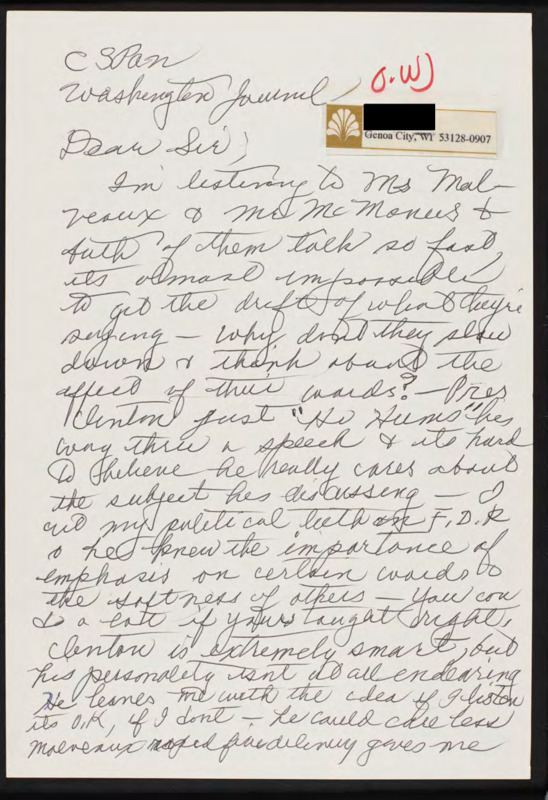 C SPan
Washington Journal
O.W)
Genoa City, WI 53128-0907
Dear Sir,
I'm listening to Ms Mal-
veaux & Mr McManus &
both of them talk so fast
its almost impossible
to get the drift of what they're
saying – why don't they slow
down & think about the
affect of their words? – Pres
Clinton just "Ho Hums" his
way thru a speech & its hard
to believe he really cares about
the subject hes discussing – I
cut my political teeth on F.D.R
& he knew the importance of
emphasis on certain words &
the softness of others – You can
do a lot if your taught right,
Clinton is extremely smart, but
his personality isnt at all endearing
He leaves me with the idea if I listen
its O.K, if I dont – he could care less
Malveaux rapid fire delivery gives me